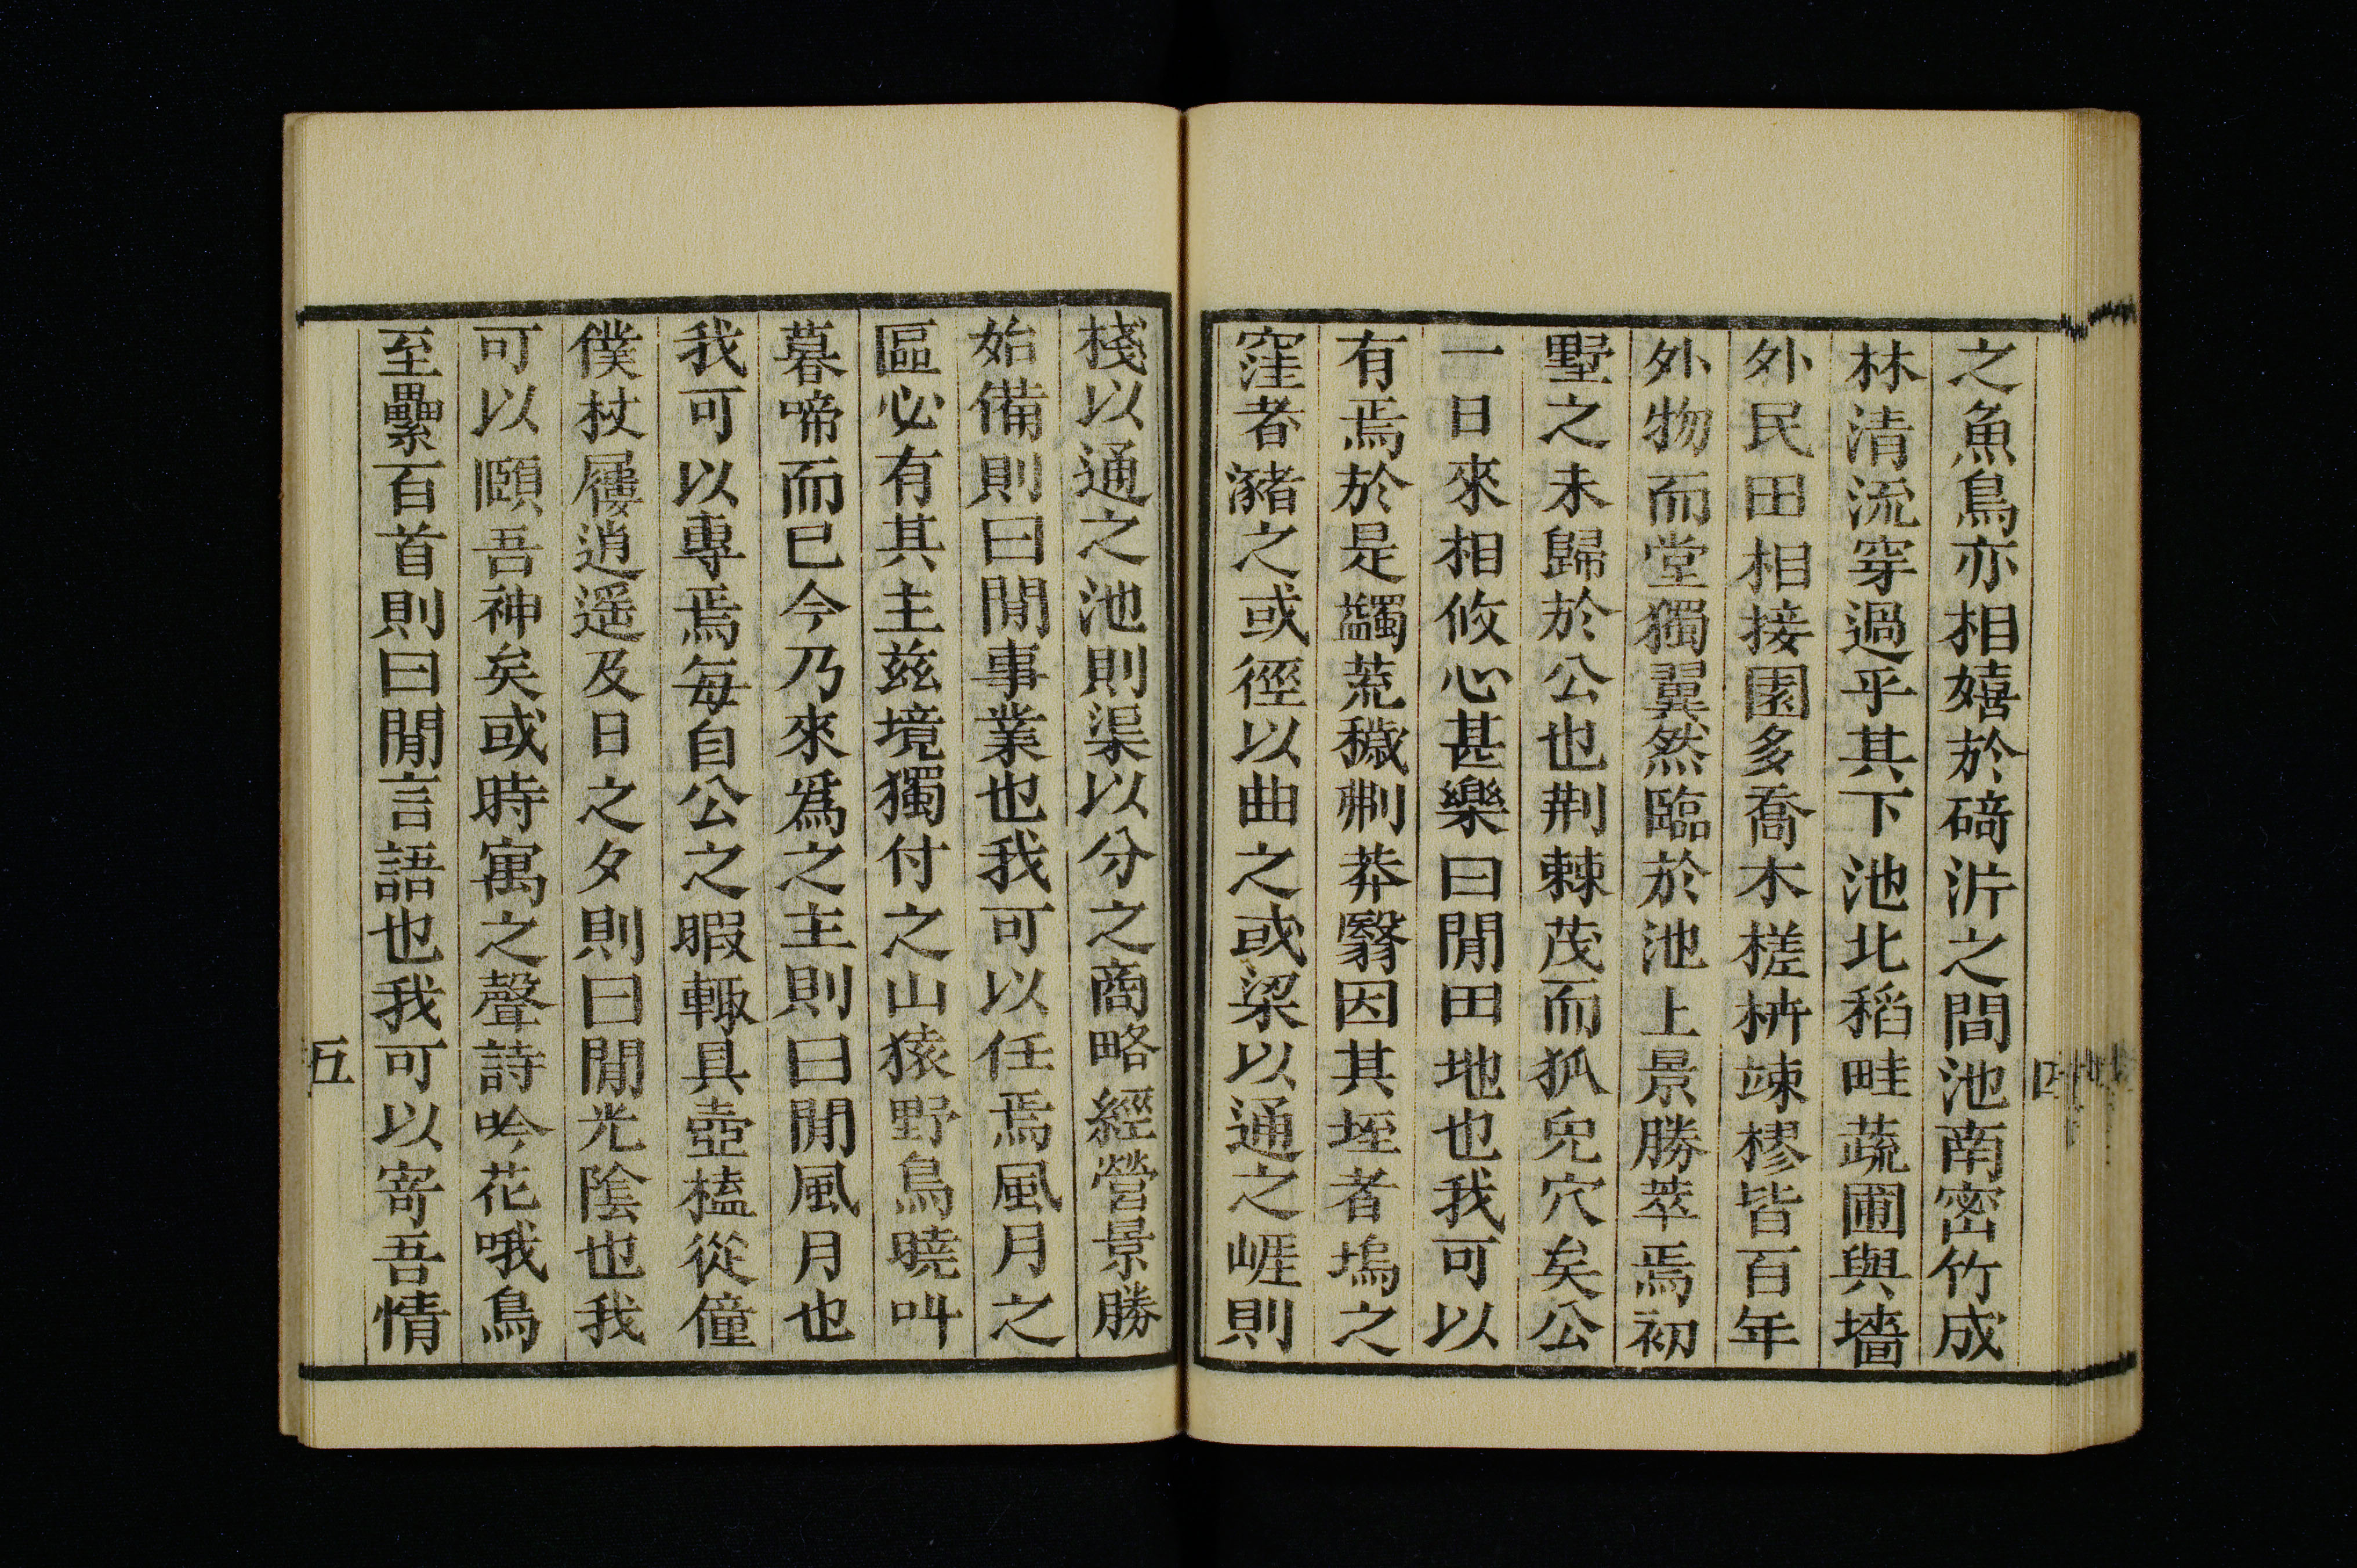 之魚鳥亦相嬉於碕沂之間池南密竹成
林清流穿過乎其下池北稻畦蔬圃與墻
外民田相接園多喬木槎枿竦樛皆百年
外物而堂獨翼然臨於池上景勝萃焉初
墅之未歸於公也荆棘茂而狐兕穴矣公
一日來相攸心甚樂曰閒田地也我可以
有焉於是蠲荒穢剻莽翳因其垤者塢之
窪者瀦之或徑以曲之或梁以通之崕則
棧以通之池則渠以分之商略經營景勝
始備則曰閒事業也我可以任焉風月之
區必有其主兹境獨付之山猿野鳥曉叫
暮啼而已今乃來爲之主則曰閒風月也
我可以專焉每自公之暇輙具壺榼從僮
僕杖屨逍遥及日之夕則曰閒光陰也我
可以頤吾神矣或時寓之聲詩吟花哦鳥
至纍百首則曰閒言語也我可以寄吾情
四
五